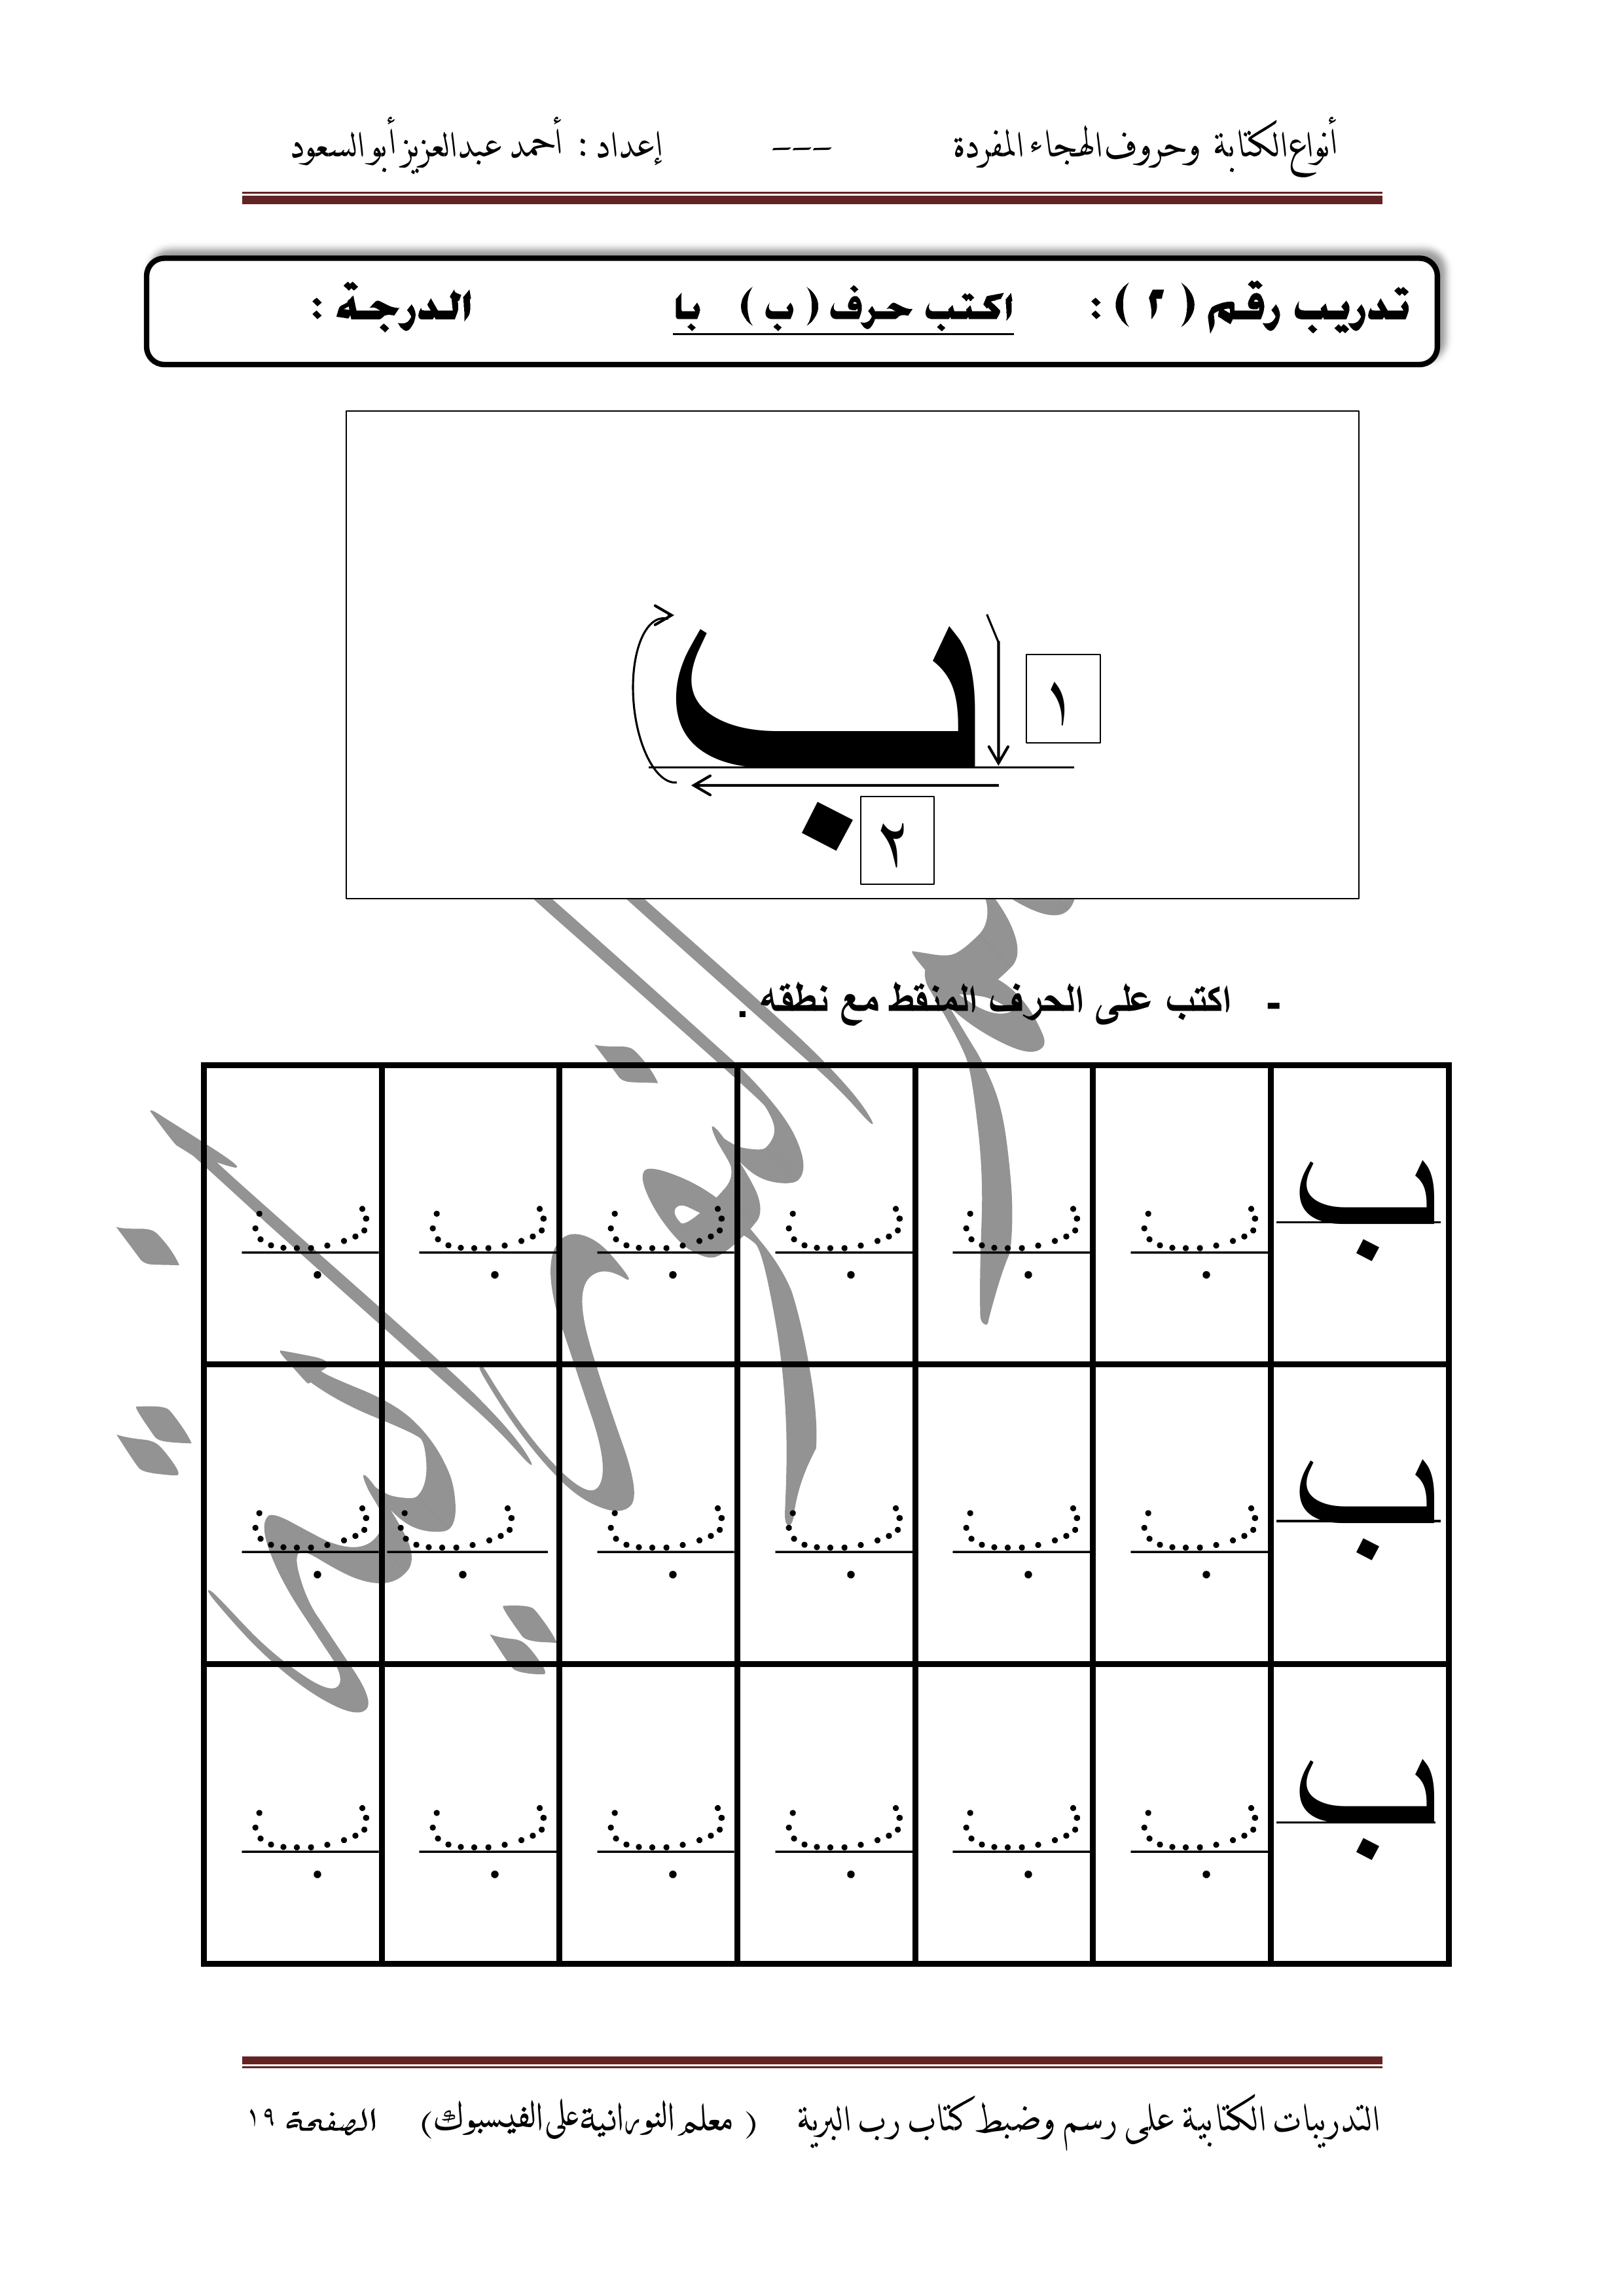 أنواع الكتابة وحروف الهجاء المفردة --- إعداد : أحمد عبدالعزيز أبو السعود
تدريب رقم ( ٢ ) : اكتب حرف ( ب ) با الدرجة :
ب
١
٢
- اكتب على الحرف المنقط مع نطقه .
ب ب ب ب ب ب ب
ب ب ب ب ب ب ب
ب ب ب ب ب ب ب
التدريبات الكتابية على رسم وضبط كتاب رب البرية ( معلم النورانية على الفيسبوك) الصفحة ١٩